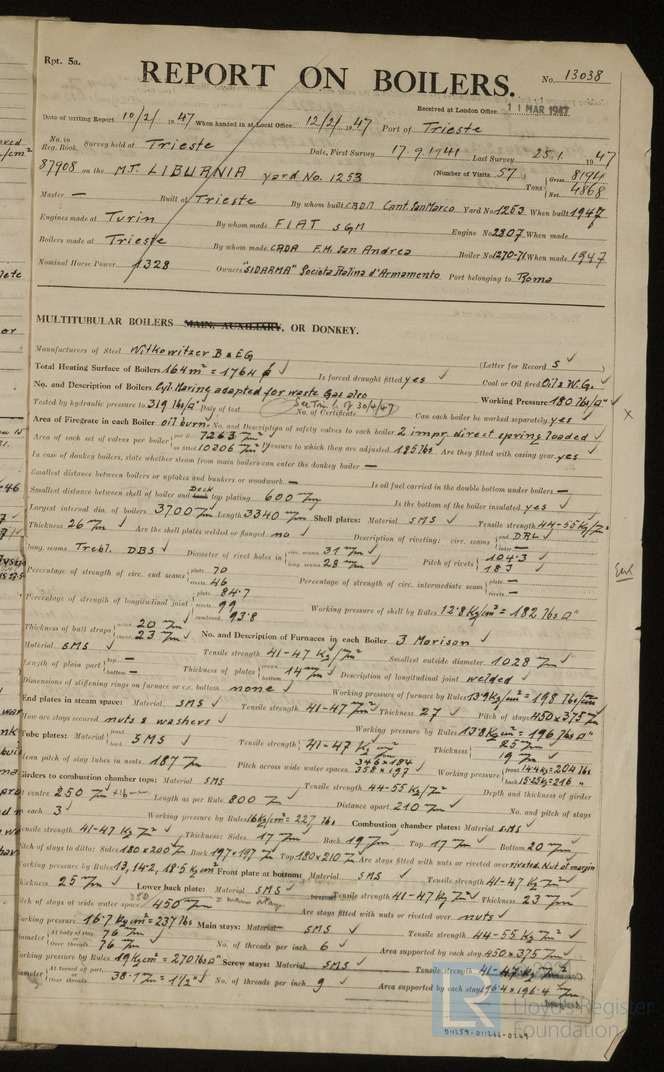 Rpt. 5a.
REPORT ON BOILERS.
No. 13038
Received at London Office 11 MAR 1947
Date of writing Report 10/2/ 1947 When handed in at Local Office 12/2/ 1947 Port of Trieste
No. in Reg. Book. Survey held at Trieste Date, First Survey 17.9.1941 Last Survey 25.1. 1947
87908 on the M.T. LIBURNIA yard No. 1253 (Number of Visits 57) Tons Gross 8194 Net 4868
Master — Built at Trieste By whom built CRDA Cant. San Marco Yard No. 1253 When built 1947
Engines made at Turin By whom made FIAT SGM Engine No. 2807 When made
Boilers made at Trieste By whom made CRDA F.M. San Andrea Boiler No. 1270-71 When made 1947
Nominal Horse Power 1328 Owners "SIDARMA" Societa Italina d'Armamento Port belonging to Roma
MULTITUBULAR BOILERS MAIN, AUXILIARY, OR DONKEY.
Manufacturers of Steel Witkowitzer B & EG (Letter for Record S)
Total Heating Surface of Boilers 164 m² = 1764 Is forced draught fitted yes Coal or Oil fired Oil & W.G.
No. and Description of Boilers Cyl. Marine adapted for waste Gas also Working Pressure 180 lbs/□"
Tested by hydraulic pressure to 319 lbs/□" Date of test No. of Certificate Can each boiler be worked separately yes
Area of Firegrate in each Boiler oil burn. No. and Description of safety valves to each boiler 2 impr. direct spring loaded
Area of each set of valves per boiler per Rule 7263 m/m² as fitted 10206 m/m² Pressure to which they are adjusted 185 lbs Are they fitted with easing gear yes
In case of donkey boilers, state whether steam from main boilers can enter the donkey boiler —
Smallest distance between boilers or uptakes and bunkers or woodwork — Is oil fuel carried in the double bottom under boilers —
Smallest distance between shell of boiler and Deck tank top plating 600 m/m Is the bottom of the boiler insulated yes
Largest internal dia. of boilers 3700 m/m Length 3340 m/m Shell plates: Material SMS Tensile strength 44-55 Kg/m/m²
Thickness 26 m/m Are the shell plates welded or flanged no Description of riveting: circ. seams end DRL inter —
long. seams Trebl. DBS Diameter of rivet holes in circ. seams 31 m/m long. seams 28 m/m Pitch of rivets 104.3 183
Percentage of strength of circ. end seams plate 70 rivets 46 Percentage of strength of circ. intermediate seam plate — rivets —
Percentage of strength of longitudinal joint plate 84.7 rivets 99 combined 93.8 Working pressure of shell by Rules 12.8 Kg/cm² = 182 lbs □"
Thickness of butt straps outer 20 m/m inner 23 m/m No. and Description of Furnaces in each Boiler 3 Morison
Material SMS Tensile strength 41-47 Kg/m/m² Smallest outside diameter 1028 m/m
Length of plain part top — bottom — Thickness of plates crown bottom 14 m/m Description of longitudinal joint welded
Dimensions of stiffening rings on furnace or c.c. bottom none Working pressure of furnace by Rules 13.9 Kg/cm² = 198 lbs
End plates in steam space: Material SMS Tensile strength 41-47 m/m² Thickness 27 Pitch of stays 450 x 375 m/m
How are stays secured nuts & washers Working pressure by Rules 13.8 Kg cm² = 196 lbs □"
Tube plates: Material front back SMS Tensile strength 41-47 Kg m/m² Thickness 25 m/m 19 m/m
Mean pitch of stay tubes in nests 187 m/m Pitch across wide water spaces 346 x 184 358 x 197 Working pressure front 14.4 Kg = 204 lbs back 15.25 Kg = 216 "
Girders to combustion chamber tops: Material SMS Tensile strength 44-55 Kg/m/m² Depth and thickness of girder
centre 250 m/m Length as per Rule 800 m/m Distance apart 210 m/m No. and pitch of stays
each 3 Working pressure by Rules 16 Kg/cm² = 227 lbs Combustion chamber plates: Material SMS
Tensile strength 41-47 Kg m/m² Thickness: Sides 17 m/m Back 19 m/m Top 17 m/m Bottom 20 m/m
Pitch of stays to ditto: Sides 180 x 200 m/m Back 197 x 197 m/m Top 180 x 210 m/m Are stays fitted with nuts or riveted over riveted. Nut at margin
Working pressure by Rules 13, 14.2, 18.5 Kg cm² Front plate at bottom: Material SMS Tensile strength 41-47 Kg m/m²
Thickness 25 m/m Lower back plate: Material SMS Tensile strength 41-47 Kg m/m² Thickness 23 m/m
Pitch of stays at wide water space 450 m/m Are stays fitted with nuts or riveted over nuts
Working pressure 16.7 Kg cm² = 237 lbs Main stays: Material SMS Tensile strength 44-55 Kg m/m²
Diameter At body of stay 76 m/m Over threads 76 m/m No. of threads per inch 6 Area supported by each stay 450 x 375 m/m
Working pressure by Rules 19 Kg cm² = 270 lbs □" Screw stays: Material SMS Tensile strength 41-47 Kg m/m²
Diameter At turned off part Over threads 38.1 m/m = 1½" No. of threads per inch 9 Area supported by each stay 196.4 x 196.4 m/m
Lloyd's Register
Foundation
011259-011266-0249